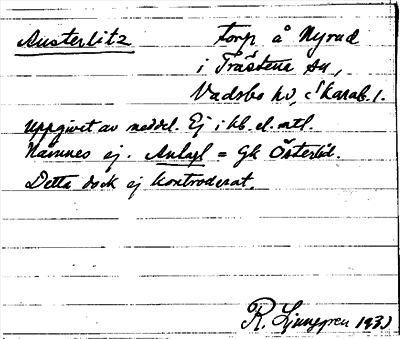 Austerlitz Torp å Nyrud
i Trästena sn,
Vadsbo hd, Skarab. l.
Uppgivet av meddel. Ej i kb. el. mtl.
Namnes ej. Anlagt = Gk Österlid.
Detta dock ej kontrollerat.
R. Ljunggren 193